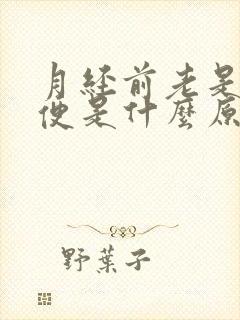 月经前老是
便是什麼原
野葉子